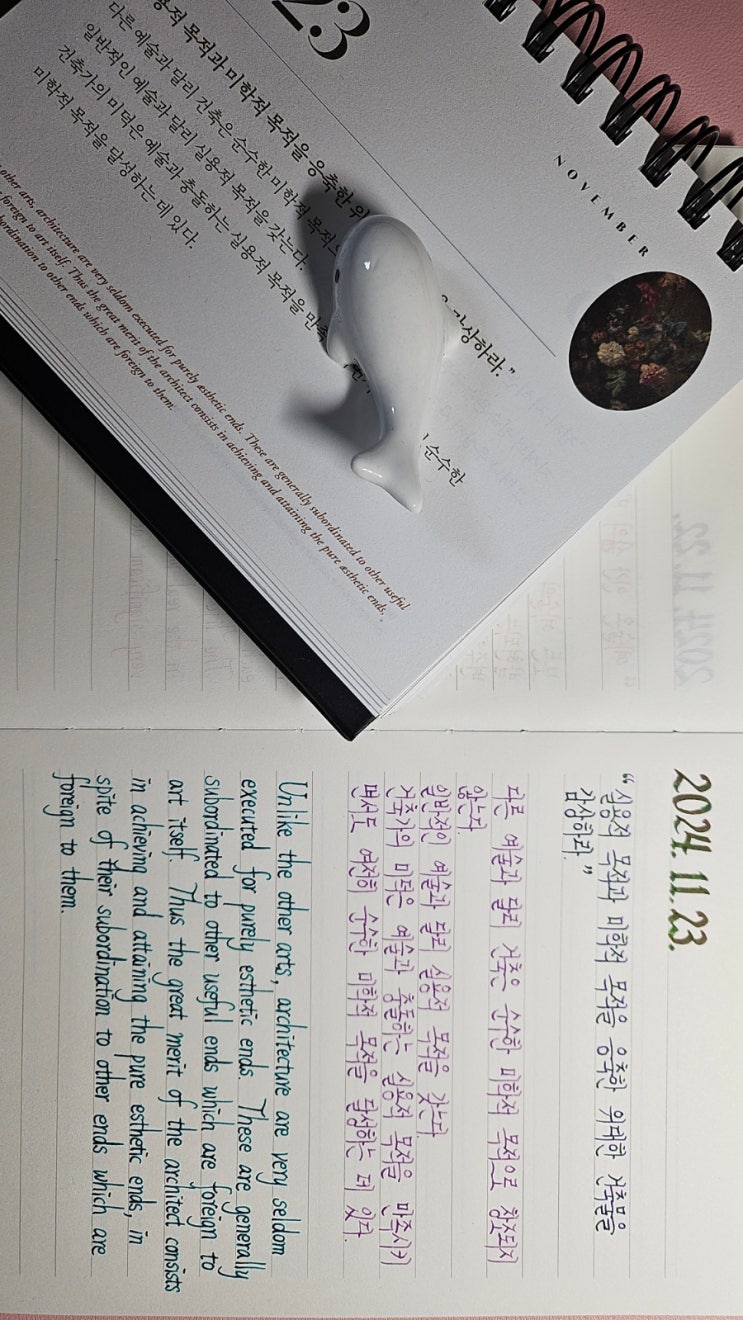 23
NOVEMBER
용적 목적과 미학적 목적을 응축한 위
감상하라."
다른 예술과 달리 건축은 순수한 미학적 목적으
일반적인 예술과 달리 실용적 목적을 갖는다.
건축가의 미덕은 예술과 충돌하는 실용적 목적을 만족
순수한
미학적 목적을 달성하는 데 있다.
other arts, architecture are very seldom executed for purely æsthetic ends. These are generally subordinated to other useful
foreign to art itself. Thus the great merit of the architect consists in achieving and attaining the pure æsthetic ends,
subordination to other ends which are foreign to them.
2024. 11. 22.
2024. 11. 23.
"실용적 목적과 미학적 목적을 응축한 위대한 건축물을
감상하라."
다른 예술과 달리 건축은 순수한 미학적 목적으로 창조되지
않는다.
일반적인 예술과 달리 실용적 목적을 갖는다.
건축가의 미덕은 예술과 충돌하는 실용적 목적을 만족시키
면서도 여전히 순수한 미학적 목적을 달성하는 데 있다.
Unlike the other arts, architecture are very seldom
executed for purely esthetic ends. These are generally
subordinated to other useful ends which are foreign to
art itself. Thus the great merit of the architect consists
in achieving and attaining the pure esthetic ends, in
spite of their subordination to other ends which are
foreign to them.